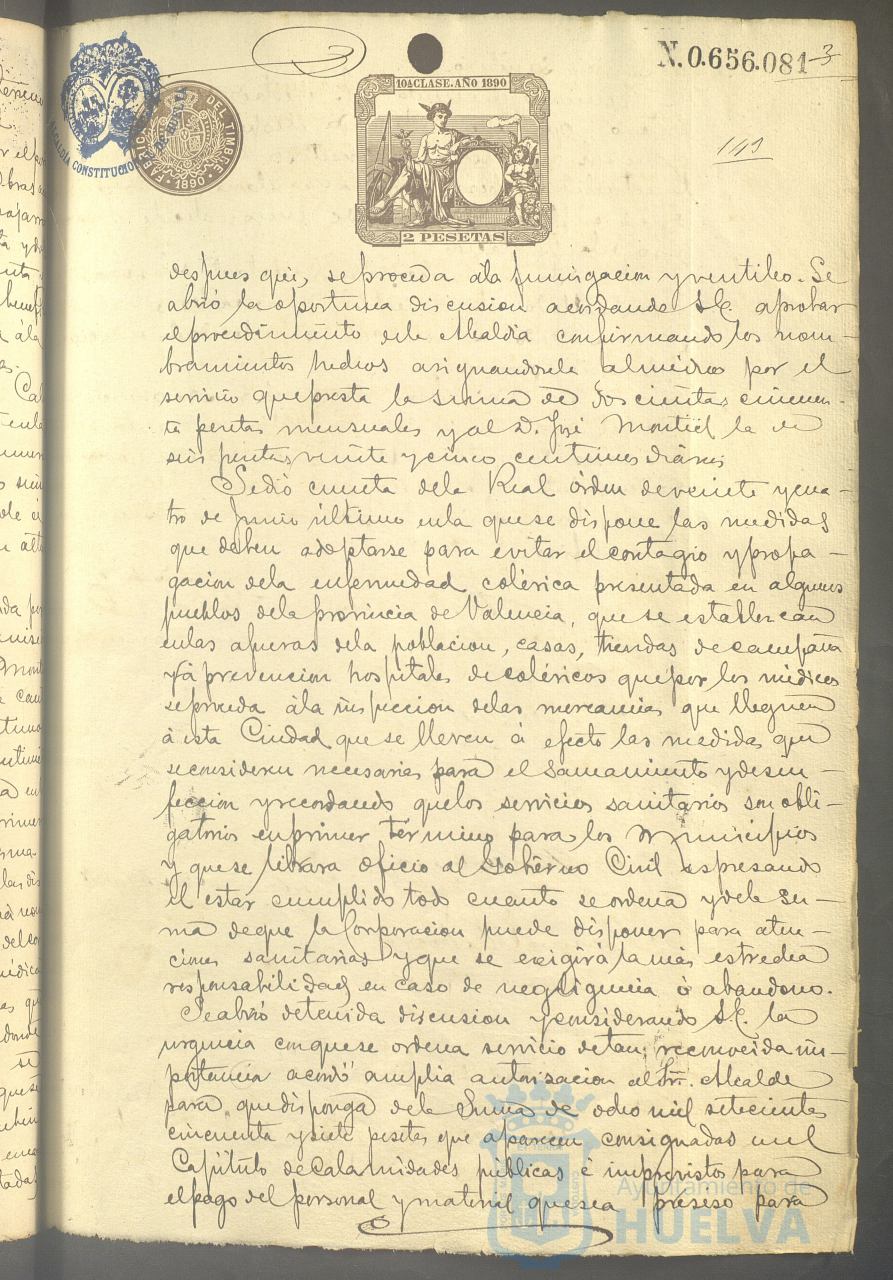 3
N.0.656.081
3
10ª CLASE. AÑO 1890
FABRICA DEL TIMBRE
1890
ALCALDIA CONSTITUCIONAL DE HUELVA
2 PESETAS
despues que, se proceda á la fumigacion y ventileo. Se
abrió la oportuna discusion acordando S.E. aprobar
el procedimiento de la Alcaldia confirmando los nom-
bramientos hechos asignandosele al médico por el
servicio que presta la suma de doscientas cincuen-
ta pesetas mensuales y al D. José Montiel la de
seis pesetas veinte y cinco centimos diarios
Se dió cuenta de la Real órden de veinte y cua-
tro de Junio último en la que se dispone las medidas
que deben adoptarse para evitar el contagio y propa-
gacion de la enfermedad colérica presentada en algunos
pueblos de la provincia de Valencia, que se establezcan
en las afueras de la poblacion, casas, tiendas de campaña
y á prevencion hospitales de coléricos que por los médicos
se proceda á la inspeccion de las mercancias que lleguen
á esta Ciudad que se lleven á efecto las medidas que
se consideren necesarias para el saneamiento y desin-
feccion y recordando que los servicios sanitarios son obli-
gatorios en primer término para los Municipios
y que se librara oficio al Gobierno Civil espresando
el estar cumplido todo cuanto se ordena y de la su-
ma de que la Corporacion puede disponer para aten-
ciones sanitarias y que se exigirá la más estrecha
responsabilidad en caso de negligencia ó abandono.
Se abrió detenida discusion y considerando S.E. la
urgencia con que se ordena servicio de tan reconocida im-
portancia acordó amplia autorisacion al Sr. Alcalde
para que disponga de la Suma de ocho mil setecientas
cincuenta y siete pesetas que aparecen consignadas en el
Capitulo de Calamidades públicas é imprevistos para
el pago del personal y material que sea preseso para
Ayuntamiento de
HUELVA